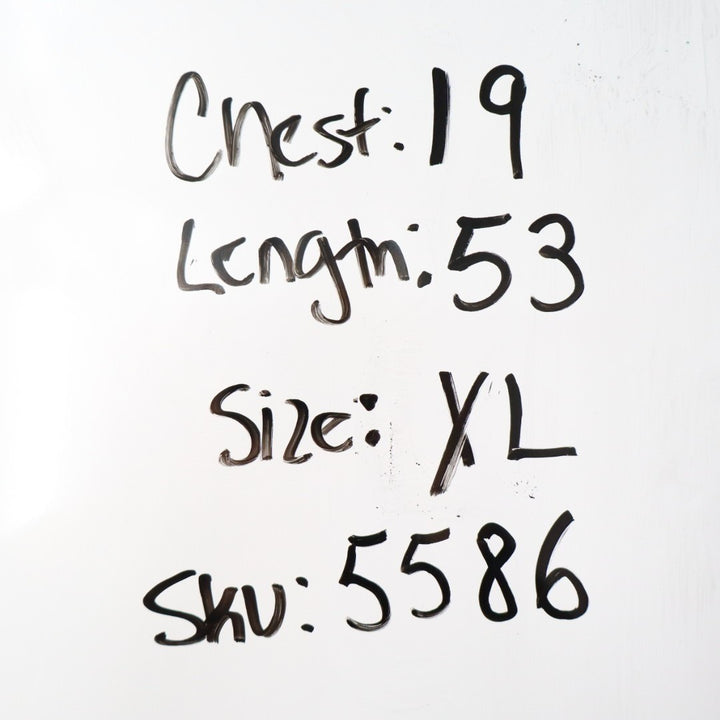 Chest: 19
Length: 53
Size: XL
Sku: 5586